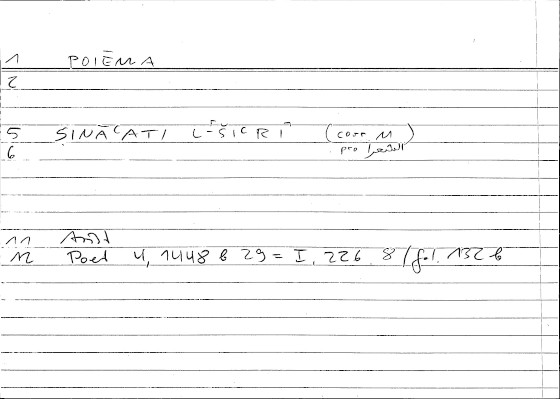 1 POIĒMA
2
5 ṢINĀʿATI L-ŠIʿRĪ (corr M)
6 pro الشعرا
11 Arist
12 Poet 4, 1448 b 29 = I, 226. 8 / fol. 132 b